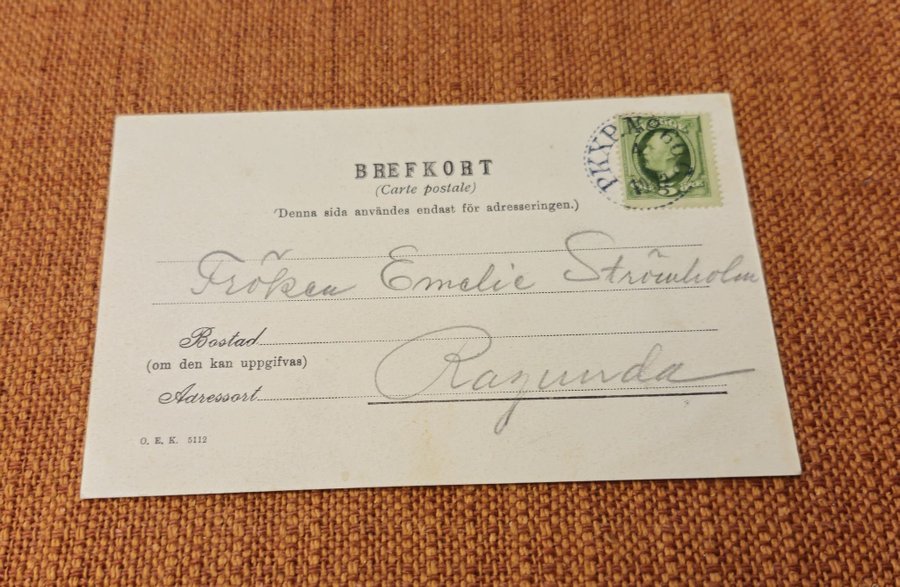 BREFKORT
(Carte postale)
(Denna sida användes endast för adresseringen.)
PKXP. No
Fröken Emelie Strömholm
Bostad
(om den kan uppgifvas)
Ragunda
Adressort
O. E. K. 5112